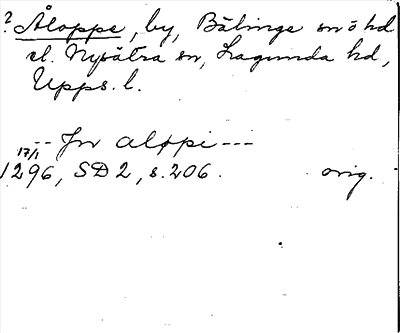 ? Åloppe, by, Bälinge sn o hd
el. Nysätra sn, Lagunda hd,
Upps. l.
-- Jn alöpi ---
17/1
1296, SD 2, s. 206. orig.